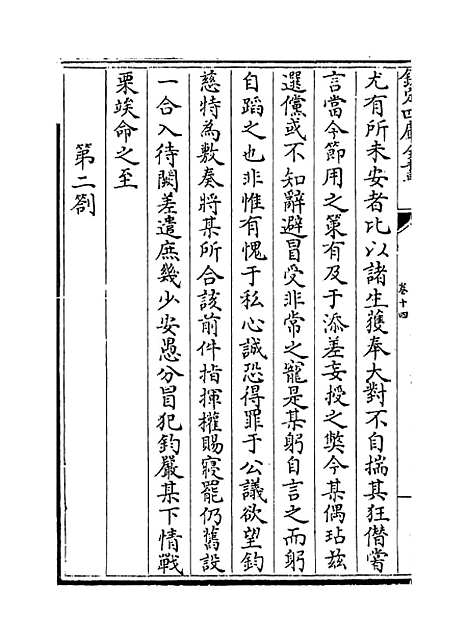 欽定四庫全書
卷十四
尤有所未安者比以諸生獲奉大對不自揣其狂僣嘗
言當今節用之策有及于添差妄授之獘今某偶玷兹
選儻或不知辭避冒受非常之寵是某躬自言之而躬
自蹈之也非惟有愧于私心誠恐得罪于公議欲望鈞
慈特為敷奏將某所合該前件指揮㩁賜寢罷仍舊設
一合入待闕差遣庶幾少安愚分冒犯鈞嚴某下情戰
栗竢命之至
第二劄